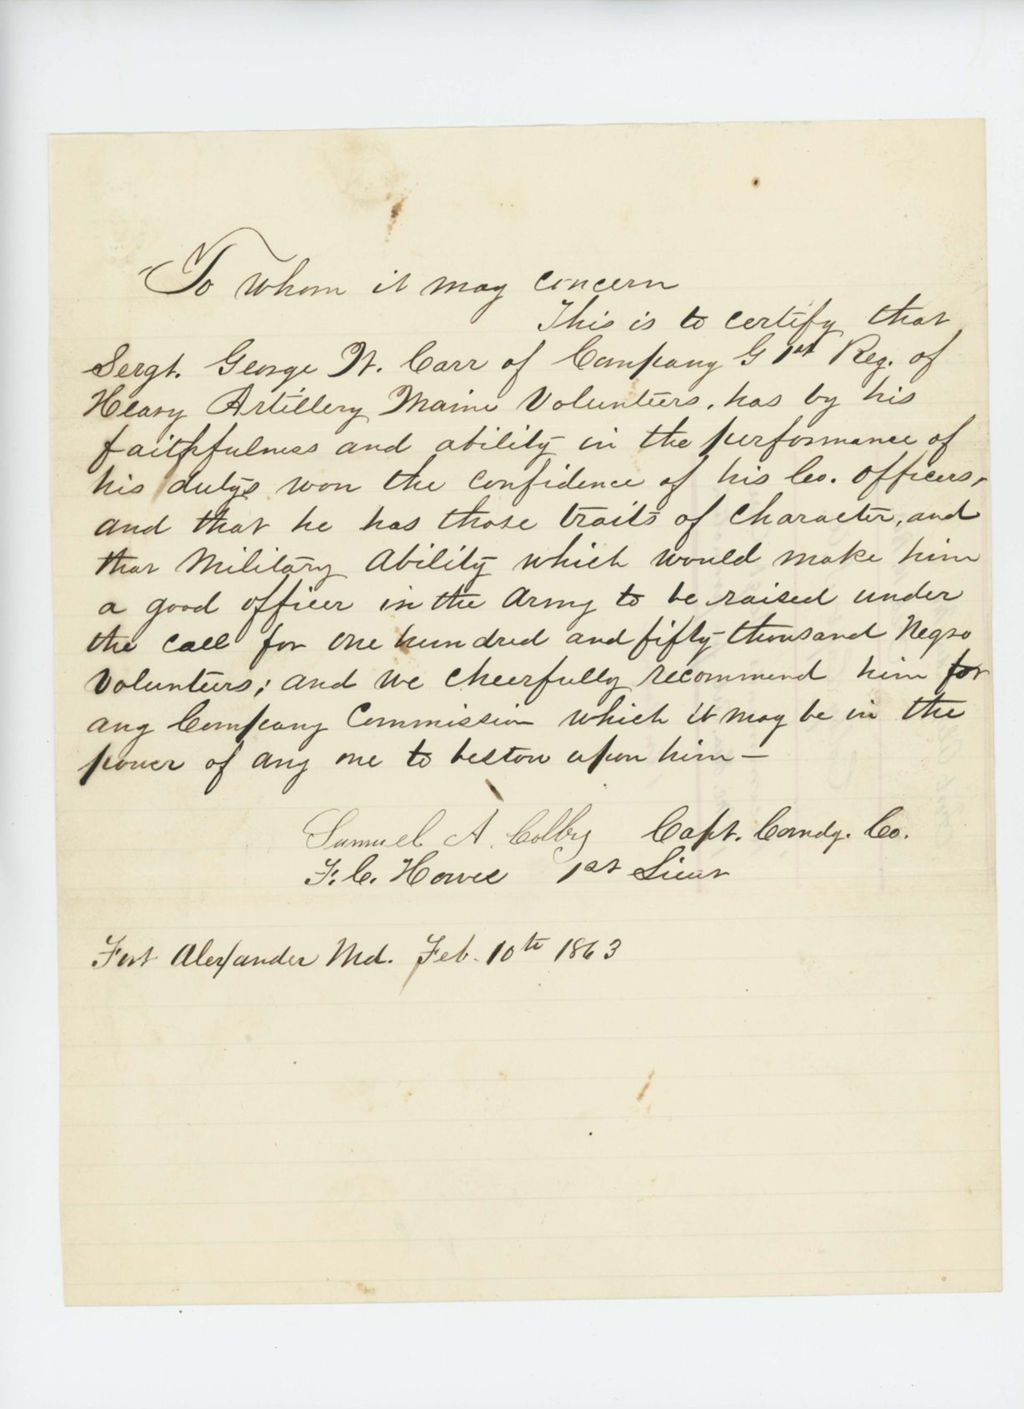 To whom it may concern
This is to certify that
Sergt. George W. Carr of Company G 1st Reg. of
Heavy Artillery Maine Volunteers, has by his
faithfulness and ability in the performance of
his dutys won the confidence of his Co. officers,
and that he has those traits of Character, and
that Military Ability which would make him
a good officer in the Army to be raised under
the call for one hundred and fifty thousand Negro
Volunteers; and we cheerfully recommend him for
any Company Commission which it may be in the
power of any one to bestow upon him—
Samuel A. Colby Capt. Comdg. Co.
F. C. Howe 1st Lieut
Fort Alexander Md. Feb. 10th 1863